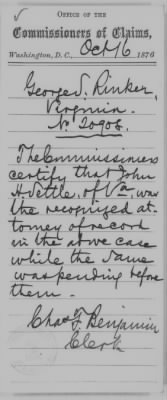 OFFICE OF THE
Commissioners of Claims,
Washington, D. C., Oct 16 1876
George S. Rinker,
Virginia.
No. 20908.
The Commissioners
certify that John
H. Settle, of Va, was
the recognized at-
torney of record
in the above case
while the same
was pending before
them.
Chas F. Benjamin
Clerk